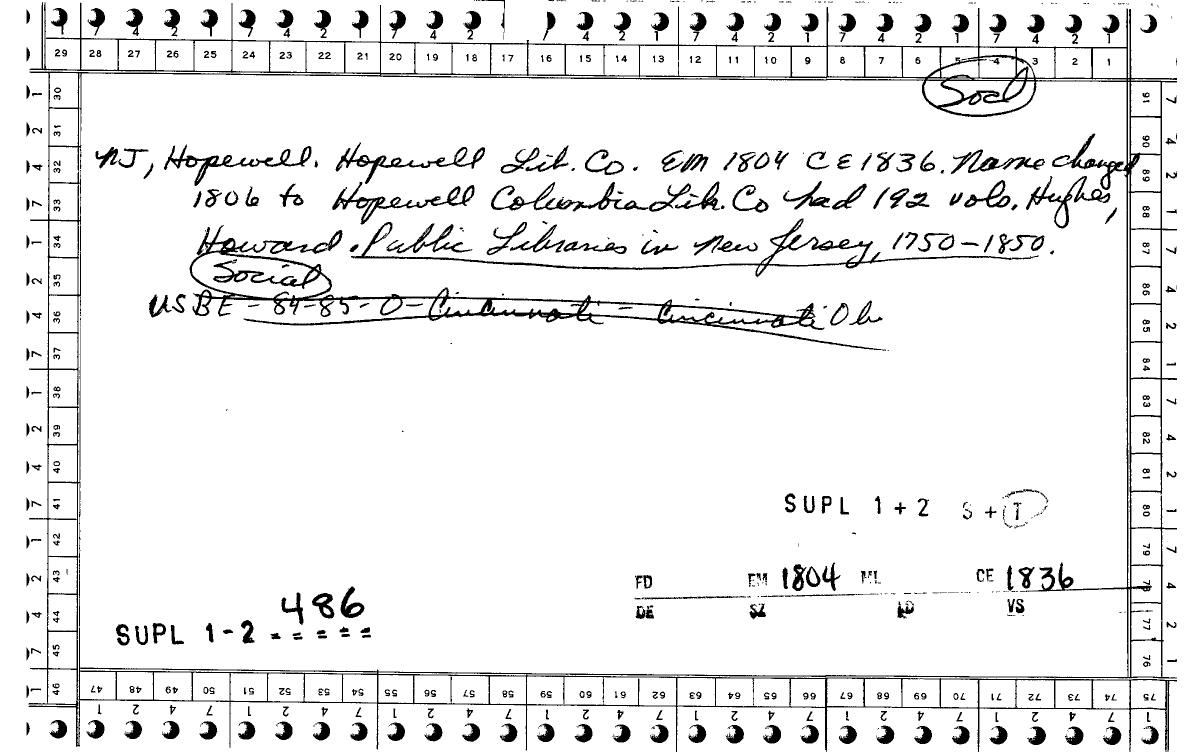 1 7 4 2 1 7 4 2 1 7 4 2 7 4 2 1 7 4 2 1 7 4 2 1 7 4 2 1
29 28 27 26 25 24 23 22 21 20 19 18 17 16 15 14 13 12 11 10 9 8 7 6 5 4 3 2 1
Socl
NJ, Hopewell. Hopewell Lib. Co. EM 1804 CE 1836. Name changed
1806 to Hopewell Columbia Lib. Co had 192 vols. Hughes,
Howard. Public Libraries in New Jersey, 1750-1850.
Social
USBE - 84-85- O- Cincinnati - Cincinnati Oh
SUPL 1+2 S + T
FD EM 1804 ML CE 1836
DE SZ LD VS
486
SUPL 1-2 = = = = =
30 31 32 33 34 35 36 37 38 39 40 41 42 43 44 45 46
1 2 4 7 1 2 4 7 1 2 4 7 1 2 4 7 1
91 90 89 88 87 86 85 84 83 82 81 80 79 78 77 76
7 4 2 1 7 4 2 1 7 4 2 1 7 4 2 1
47 48 49 50 51 52 53 54 55 56 57 58 59 60 61 62 63 64 65 66 67 68 69 70 71 72 73 74 75
1 2 4 7 1 2 4 7 1 2 4 7 1 2 4 7 1 2 4 7 1 2 4 7 1 2 4 7 1